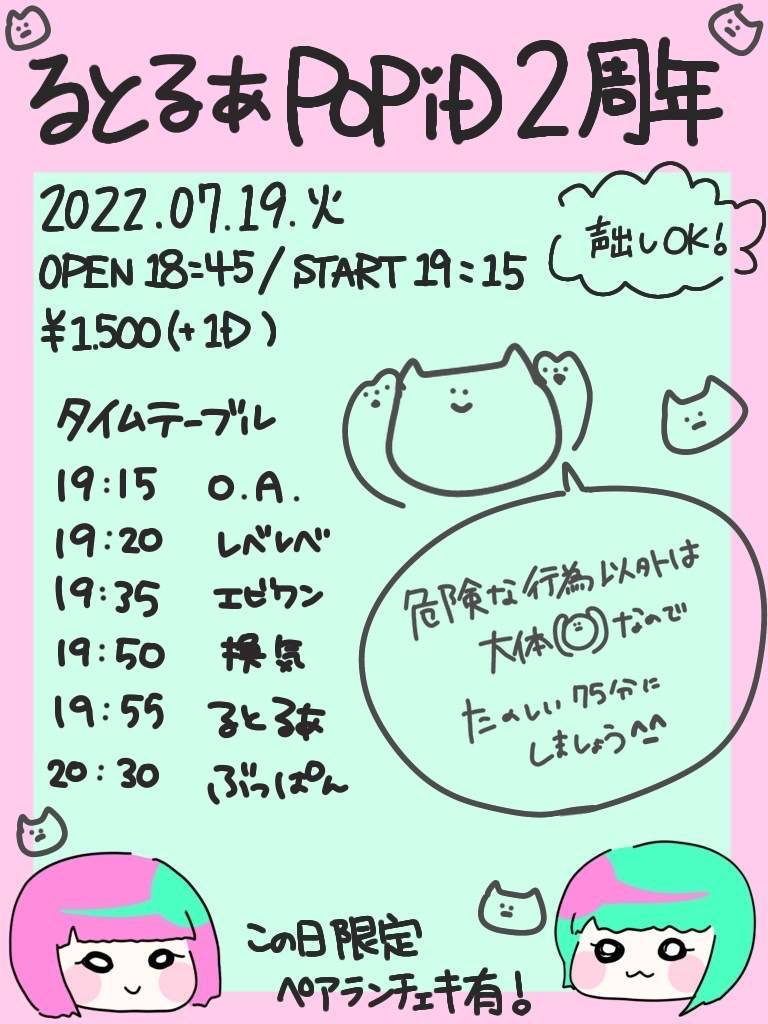 るとるあ POPiD 2周年
2022.07.19.火
声出しOK!
OPEN 18:45 / START 19:15
¥1.500(+1D)
タイムテーブル
19:15 O.A.
19:20 レベレベ
19:35 エビワン
19:50 換気
19:55 るとるあ
20:30 ぶっぱん
危険な行為以外は
大体 なので
たのしい75分に
しましょう^^
この日限定
ペアランチェキ有!